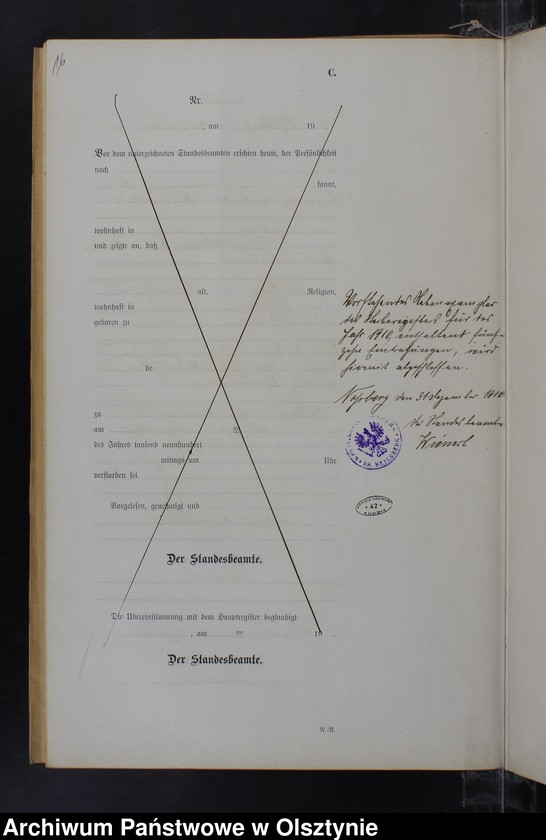 16
C.
Nr.
, am 19
Vor dem unterzeichneten Standesbeamten erschien heute, der Persönlichkeit
nach
kannt,
wohnhaft in
und zeigte an, daß
alt, Religion,
wohnhaft in
geboren zu
de
zu
am ten
des Jahres tausend neunhundert
mittags um Uhr
verstorben sei.
Vorgelesen, genehmigt und
Der Standesbeamte.
Die Übereinstimmung mit dem Hauptregister beglaubigt
, am ten 19
Der Standesbeamte.
N.-R.
Vorstehendes Nebenexemplar
des Sterberegisters für das
Jahr 1910, enthaltend fünf-
zehn Eintragungen, wird
hiermit abgeschlossen.
den 31 Dezember 1910
Der Standesbeamte
KR. HEILSBERG
42
Archiwum Państwowe w Olsztynie